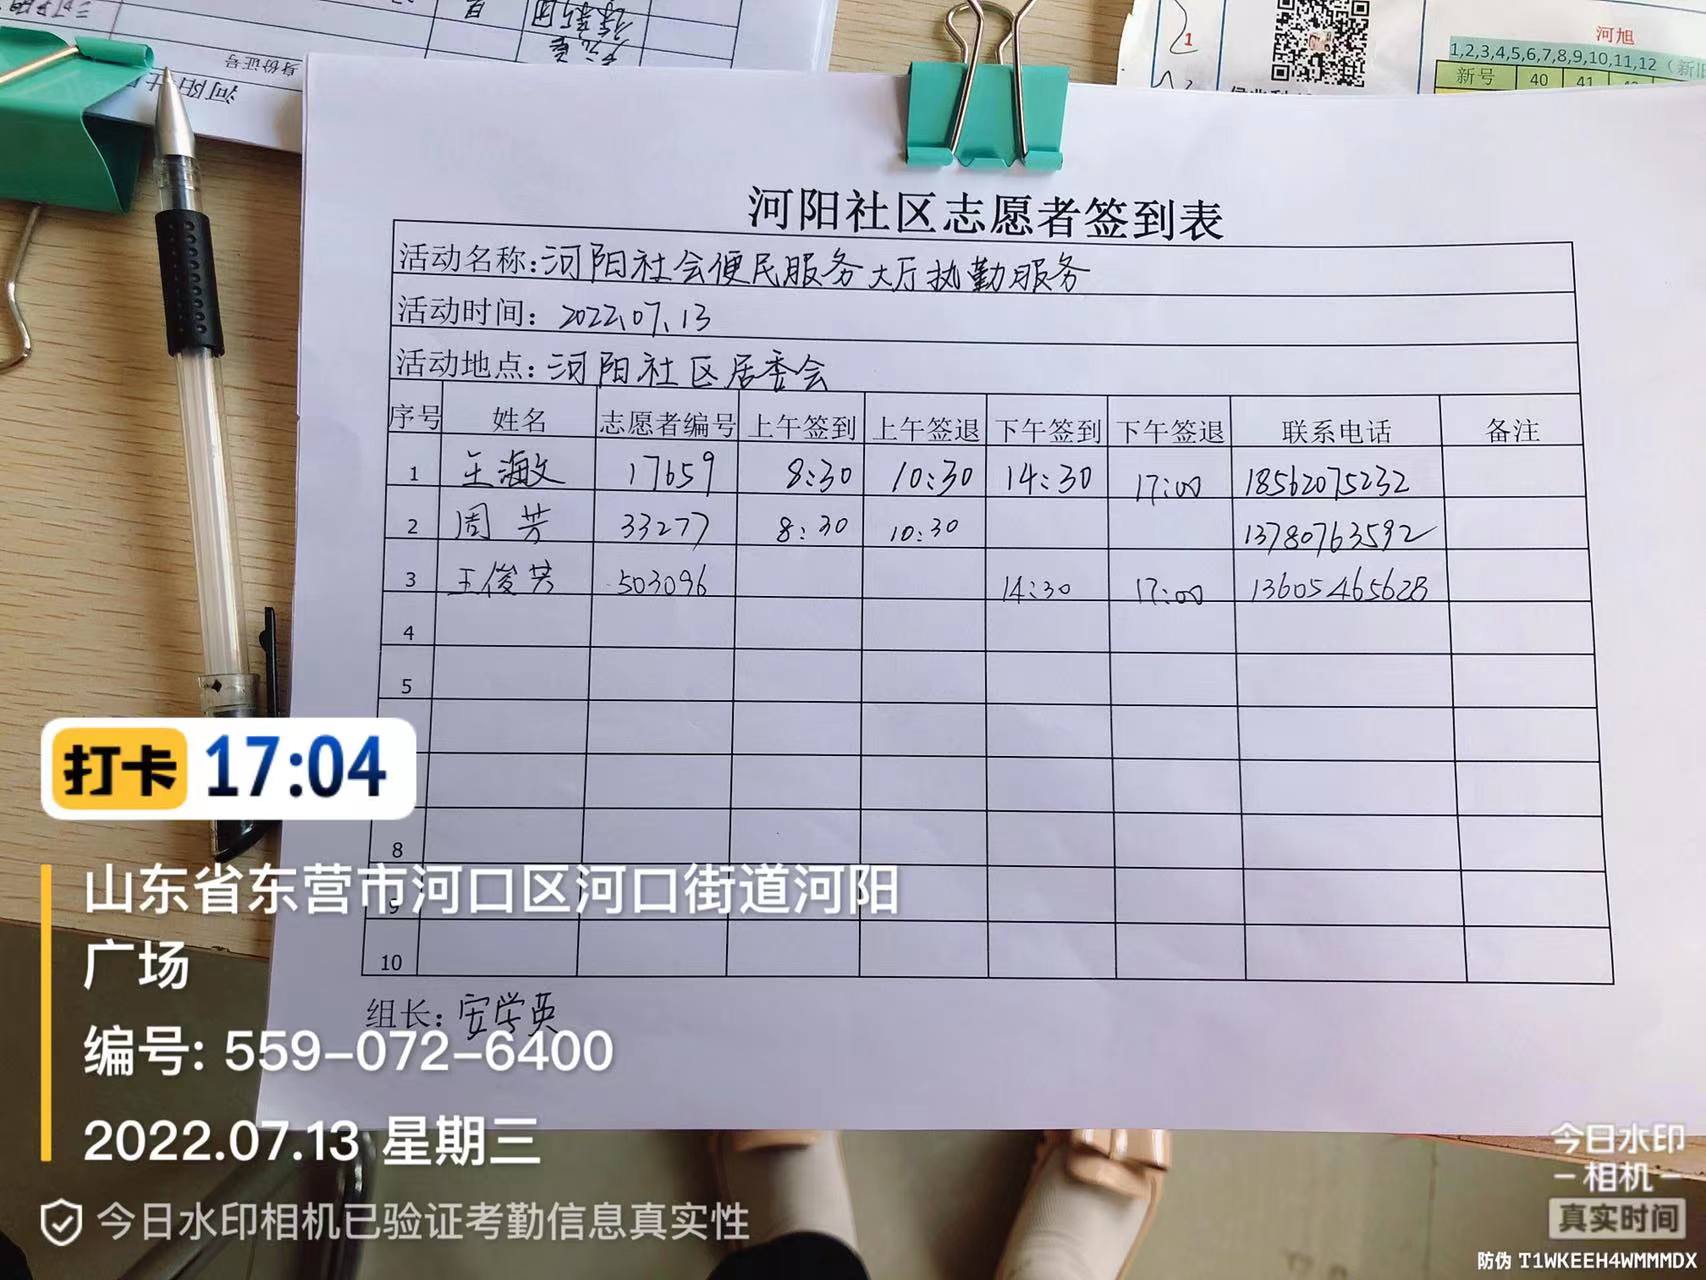 身份证号
河阳社
1
河旭
1,2,3,4,5,6,7,8,9,10,11,12（新旧
新号 40 41
河阳社区志愿者签到表
活动名称:河阳社会便民服务大厅执勤服务
活动时间: 2022.07.13
活动地点:河阳社区居委会
序号 姓名 志愿者编号 上午签到 上午签退 下午签到 下午签退 联系电话 备注
1 王海敏 17659 8:30 10:30 14:30 17:00 18562075232
2 周芳 33277 8:30 10:30 13780763592
3 王俊芳 503096 14:30 17:00 13605465628
4
5
8
9
10
组长:安学英
打卡 17:04
山东省东营市河口区河口街道河阳
广场
编号: 559-072-6400
2022.07.13 星期三
今日水印相机已验证考勤信息真实性
今日水印
-相机-
真实时间
防伪 T1WKEEH4WMMMDX